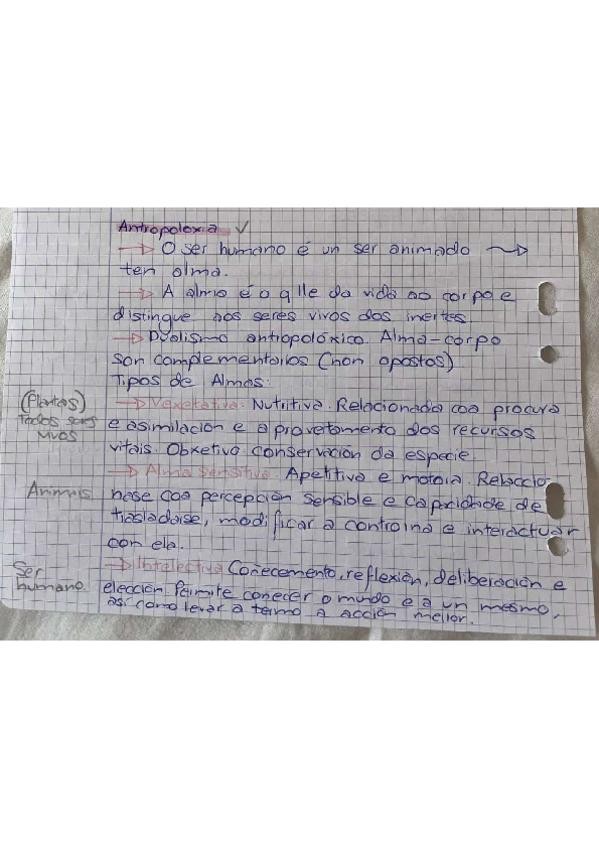 Antropoloxía ✓
→ O ser humano é un ser animado ⟿
ten alma.
→ A alma é o q lle da vida ao corpo e
distingue aos seres vivos dos inertes.
→ Dualismo antropolóxico. Alma-corpo
son complementarios (non opostos)
Tipos de Almas:
(Plantas) → Vexetativa. Nutritiva. Relacionada coa procura
Todos seres e asimilación e aproveitamento dos recursos
vivos vitais. Obxetivo conservación da especie.
→ Alma sensitiva. Apetitiva e motora. Relaccio
Animais nase coa percepción sensible e capacidade de
trasladarse, modificar a contorna e interactuar
con ela.
Ser → Intelectiva Coñecemento, reflexión, deliberación e
humano elección. Permite coñecer o mundo e a un mesmo,
así como levar a termo a acción mellor.